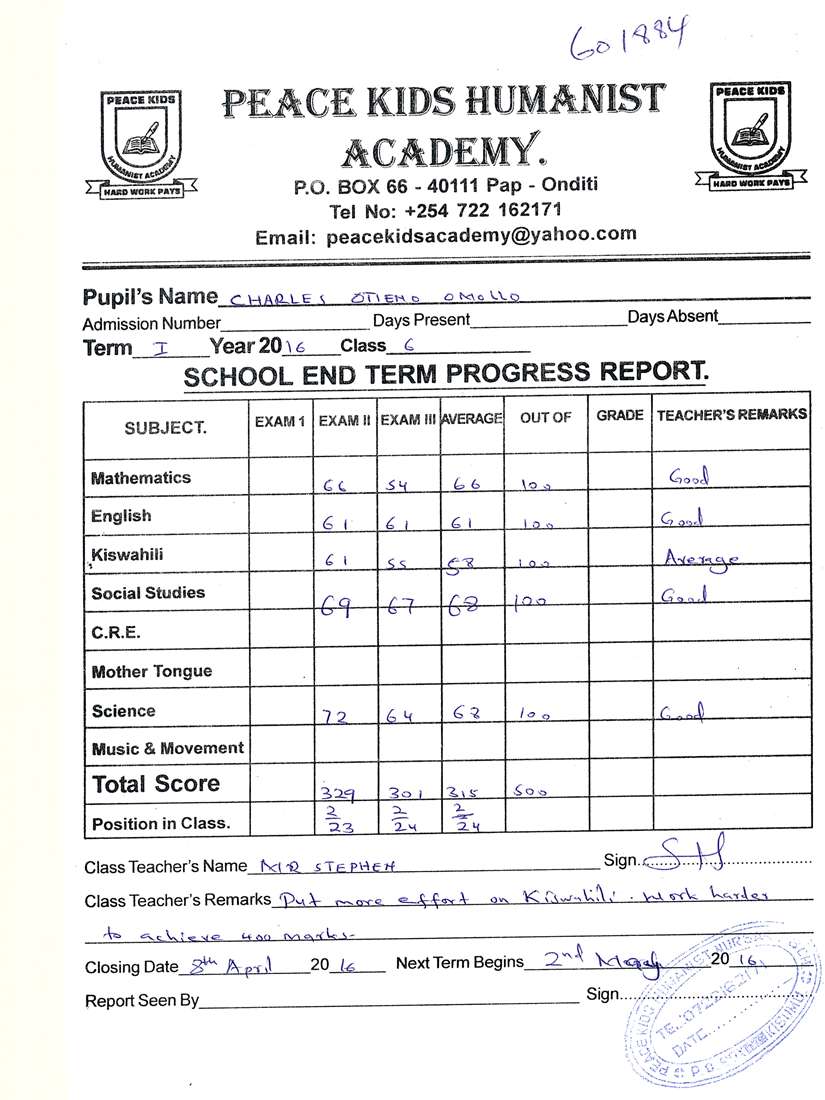 601884
PEACE KIDS
HUMANIST ACADEMY
HARD WORK PAYS
PEACE KIDS HUMANIST
ACADEMY.
PEACE KIDS
HUMANIST ACADEMY
HARD WORK PAYS
P.O. BOX 66 - 40111 Pap - Onditi
Tel No: +254 722 162171
Email: peacekidsacademy@yahoo.com
Pupil's Name CHARLES OTIENO OMOLLO
Admission Number Days Present Days Absent
Term I Year 2016 Class 6
SCHOOL END TERM PROGRESS REPORT.
SUBJECT. EXAM 1 EXAM II EXAM III AVERAGE OUT OF GRADE TEACHER'S REMARKS
Mathematics 66 54 66 100 Good
English 61 61 61 100 Good
Kiswahili 61 55 58 100 Average
Social Studies 69 67 68 100 Good
C.R.E.
Mother Tongue
Science 72 64 68 100 Good
Music & Movement
Total Score 329 301 315 500
Position in Class. 2/23 2/24 2/24
Class Teacher's Name MR STEPHEN Sign. SH
Class Teacher's Remarks Put more effort on Kiswahili. Work harder
to achieve 400 marks.
Closing Date 8th April 2016 Next Term Begins 2nd 2016
Report Seen By Sign.
PEACE KIDS HUMANIST
TEL: 0722162171
DATE
P.O.